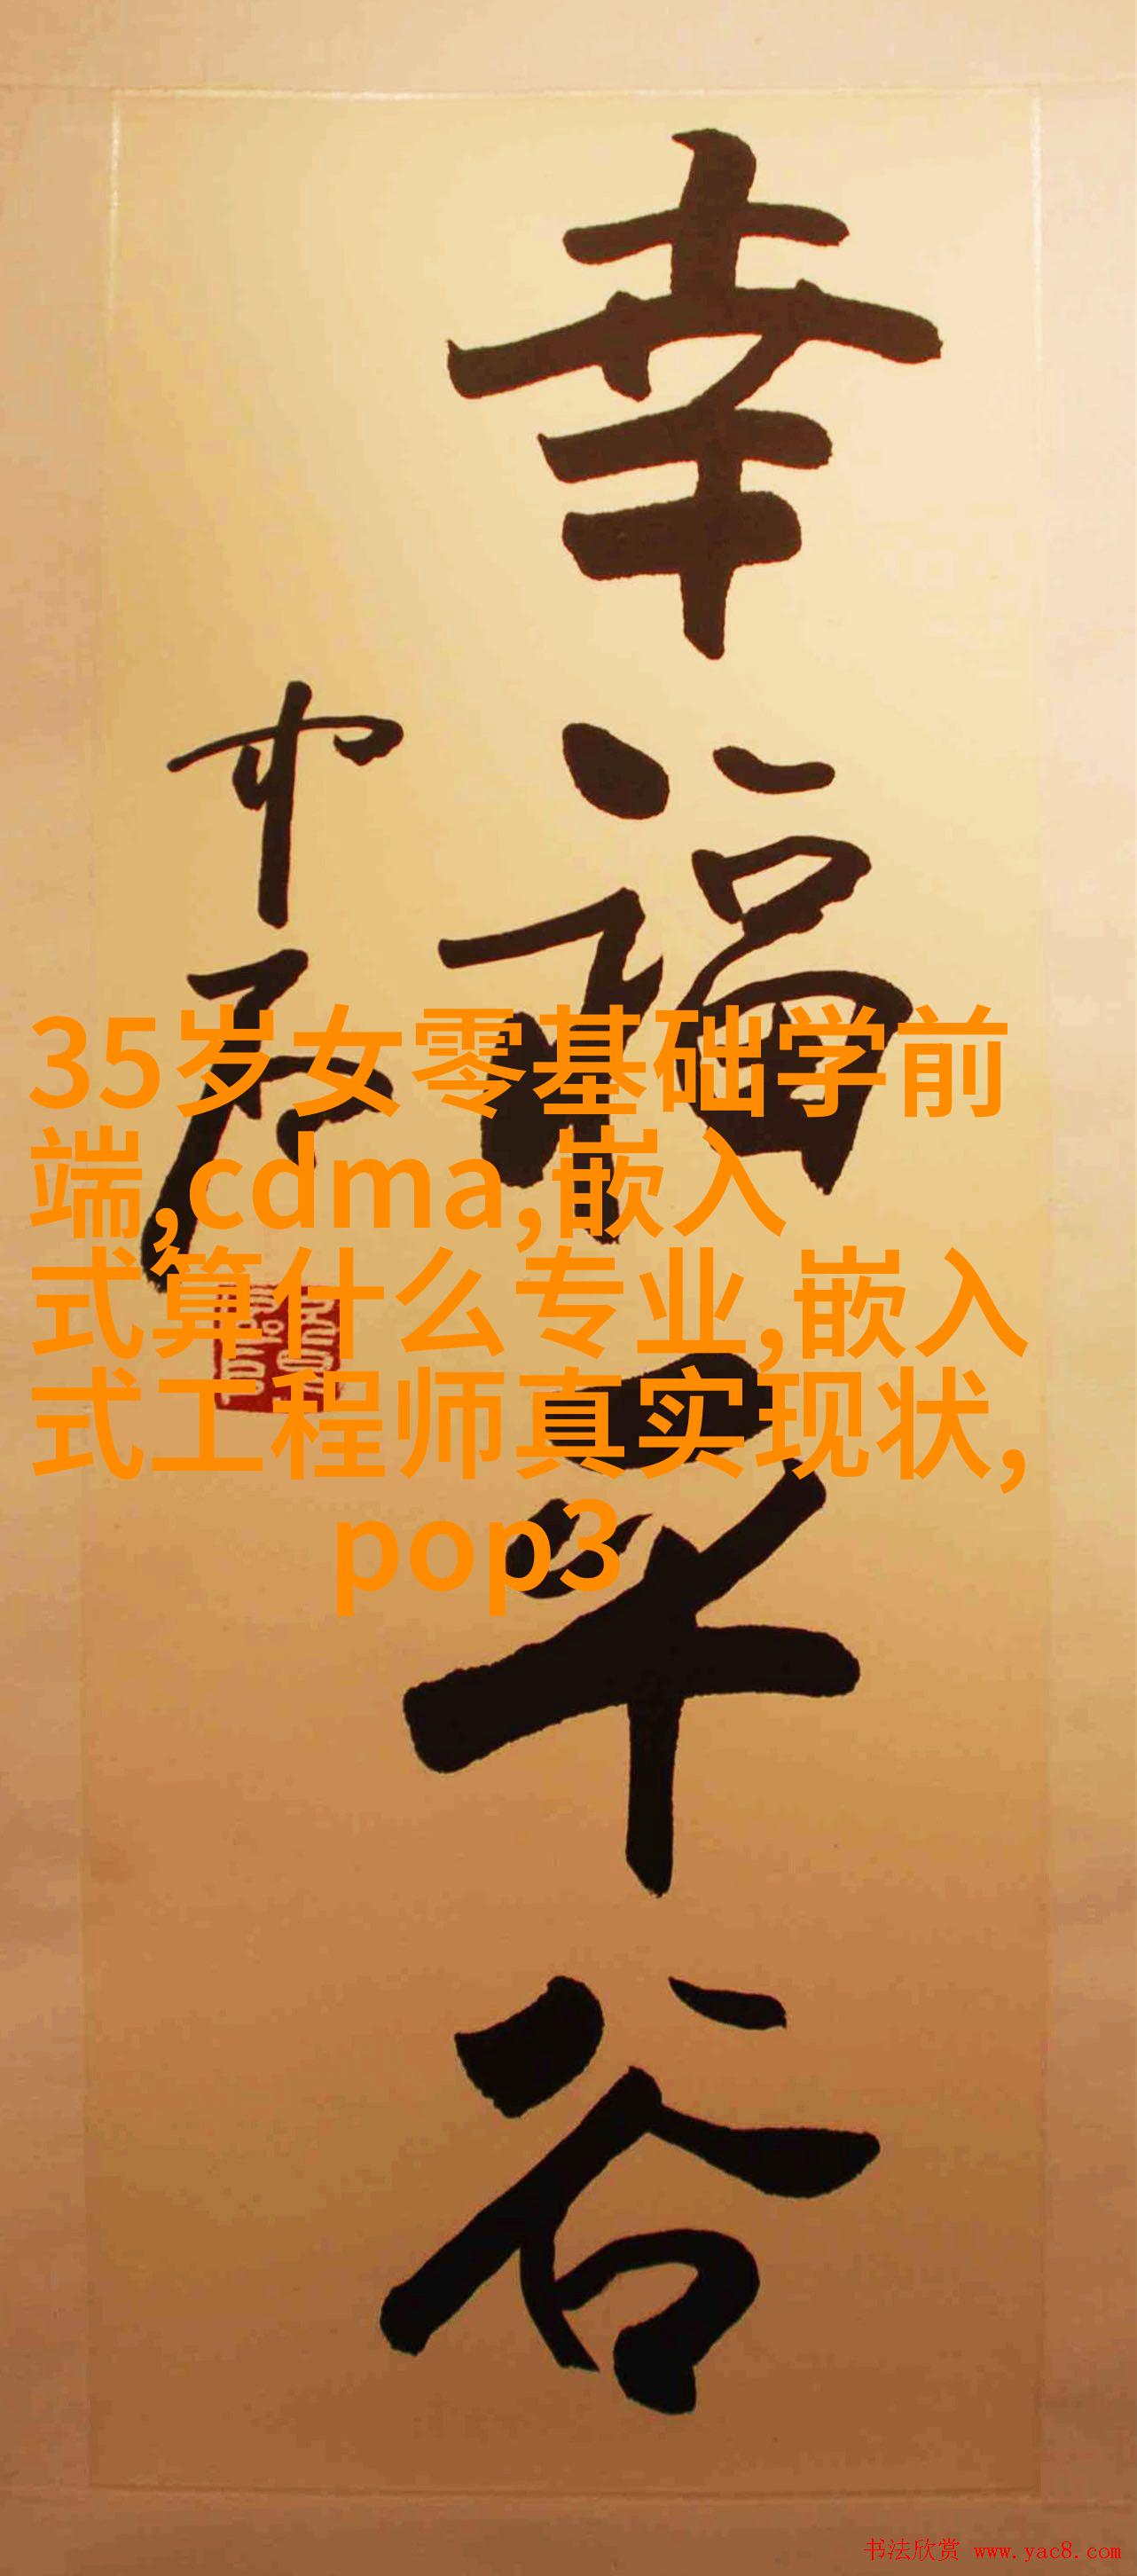 幸福平谷
中石
35岁女零基础学前
端,cdma,嵌入
式算什么专业,嵌入
式工程师真实现状,
pop3
书法欣赏 www.yac8.com